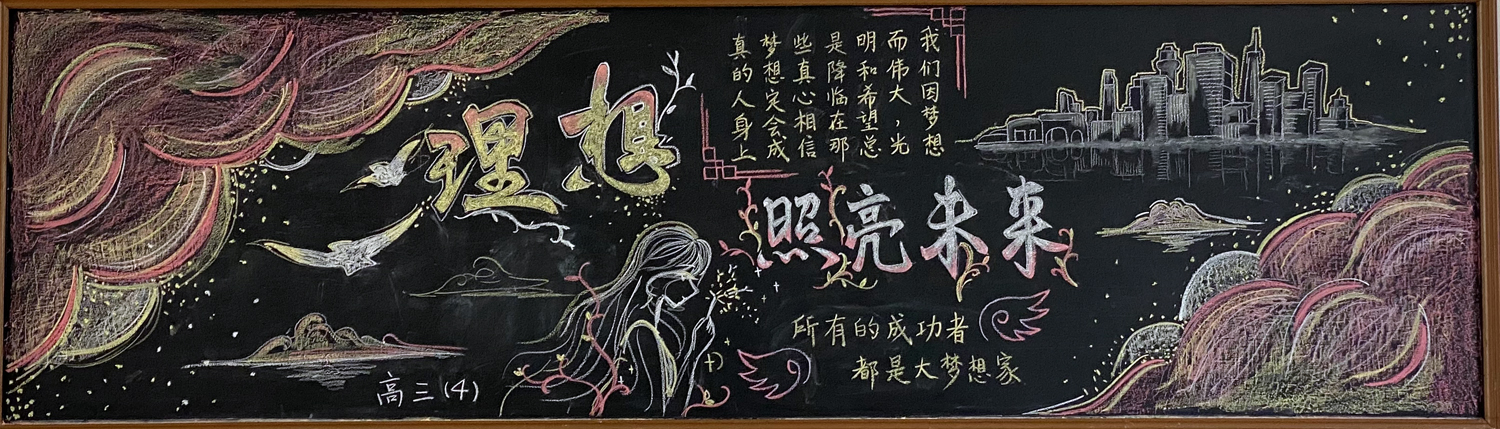 理想
照亮未来
我们因梦想
而伟大，光
明和希望总
是降临在那
些真心相信
梦想定会成
真的人身上
所有的成功者
都是大梦想家
高三(4)